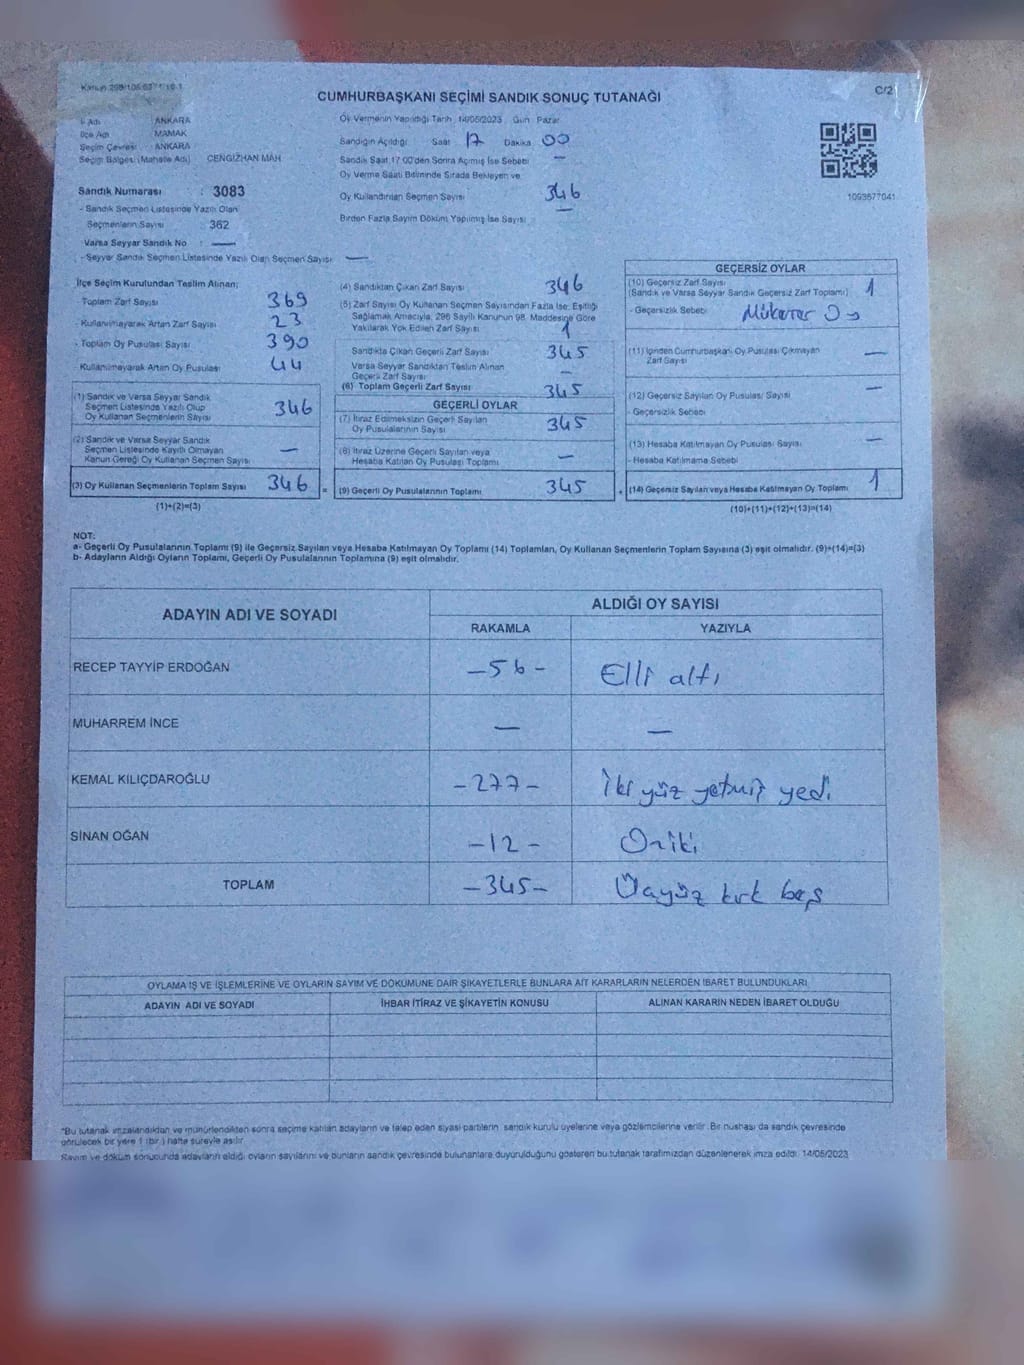 Kanun 298/105
C/2
CUMHURBAŞKANI SEÇİMİ SANDIK SONUÇ TUTANAĞI
İl Adı ANKARA
İlçe Adı MAMAK
Seçim Çevresi ANKARA
Seçim Bölgesi (Mahalle Adı) CENGİZHAN MAH
Sandık Numarası : 3083
- Sandık Seçmen Listesinde Yazılı Olan
Seçmenlerin Sayısı 362
Varsa Seyyar Sandık No : —
- Seyyar Sandık Seçmen Listesinde Yazılı Olan Seçmen Sayısı —
Oy Vermenin Yapıldığı Tarih 14/05/2023 Gün Pazar
Sandığın Açıldığı Saat 17 Dakika 00
Sandık Saat 17:00'den Sonra Açılmış İse Sebebi —
Oy Verme Saati Bitiminde Sırada Bekleyen ve
Oy Kullandırılan Seçmen Sayısı 346
Birden Fazla Sayım Döküm Yapılmış İse Sayısı —
1093677041
İlçe Seçim Kurulundan Teslim Alınan;
Toplam Zarf Sayısı 369
- Kullanılmayarak Artan Zarf Sayısı 23
- Toplam Oy Pusulası Sayısı 390
Kullanılmayarak Artan Oy Pusulası 44
(1) Sandık ve Varsa Seyyar Sandık
Seçmen Listesinde Yazılı Olup
Oy Kullanan Seçmenlerin Sayısı 346
(2) Sandık ve Varsa Seyyar Sandık
Seçmen Listesinde Kayıtlı Olmayan
Kanun Gereği Oy Kullanan Seçmen Sayısı —
(3) Oy Kullanan Seçmenlerin Toplam Sayısı 346 =
(1)+(2)=(3)
(4) Sandıktan Çıkan Zarf Sayısı 346
(5) Zarf Sayısı Oy Kullanan Seçmen Sayısından Fazla İse; Eşitliği
Sağlamak Amacıyla, 298 Sayılı Kanunun 98. Maddesine Göre
Yakılarak Yok Edilen Zarf Sayısı 1
Sandıkta Çıkan Geçerli Zarf Sayısı 345
Varsa Seyyar Sandıktan Teslim Alınan
Geçerli Zarf Sayısı —
(6) Toplam Geçerli Zarf Sayısı 345
GEÇERLİ OYLAR
(7) İtiraz Edilmeksizin Geçerli Sayılan
Oy Pusulalarının Sayısı 345
(8) İtiraz Üzerine Geçerli Sayılan veya
Hesaba Katılan Oy Pusulası Toplamı —
(9) Geçerli Oy Pusulalarının Toplamı 345 +
GEÇERSİZ OYLAR
(10) Geçersiz Zarf Sayısı
(Sandık ve Varsa Seyyar Sandık Geçersiz Zarf Toplamı) 1
- Geçersizlik Sebebi Mükerrer Oy
(11) İçinden Cumhurbaşkanı Oy Pusulası Çıkmayan
Zarf Sayısı —
(12) Geçersiz Sayılan Oy Pusulası Sayısı —
- Geçersizlik Sebebi
(13) Hesaba Katılmayan Oy Pusulası Sayısı —
- Hesaba Katılmama Sebebi
(14) Geçersiz Sayılan veya Hesaba Katılmayan Oy Toplamı 1
(10)+(11)+(12)+(13)=(14)
NOT:
a- Geçerli Oy Pusulalarının Toplamı (9) ile Geçersiz Sayılan veya Hesaba Katılmayan Oy Toplamı (14) Toplamları, Oy Kullanan Seçmenlerin Toplam Sayısına (3) eşit olmalıdır. (9)+(14)=(3)
b- Adayların Aldığı Oyların Toplamı, Geçerli Oy Pusulalarının Toplamına (9) eşit olmalıdır.
ADAYIN ADI VE SOYADI
ALDIĞI OY SAYISI
RAKAMLA YAZIYLA
RECEP TAYYİP ERDOĞAN -56- Elli altı
MUHARREM İNCE — —
KEMAL KILIÇDAROĞLU -277- İki yüz yetmiş yedi
SİNAN OĞAN -12- Oniki
TOPLAM -345- Üçyüz kırk beş
OYLAMA İŞ VE İŞLEMLERİNE VE OYLARIN SAYIM VE DÖKÜMÜNE DAİR ŞİKAYETLERLE BUNLARA AİT KARARLARIN NELERDEN İBARET BULUNDUKLARI
ADAYIN ADI VE SOYADI İHBAR İTİRAZ VE ŞİKAYETİN KONUSU ALINAN KARARIN NEDEN İBARET OLDUĞU
*Bu tutanak imzalandıktan ve mühürlendikten sonra seçime katılan adayların ve talep eden siyasi partilerin sandık kurulu üyelerine veya gözlemcilerine verilir. Bir nüshası da sandık çevresinde
görülecek bir yere 1 (bir) hafta süreyle asılır.
Sayım ve döküm sonucunda adayların aldığı oyların sayılarını ve bunların sandık çevresinde bulunanlara duyurulduğunu gösteren bu tutanak tarafımızdan düzenlenerek imza edildi. 14/05/2023